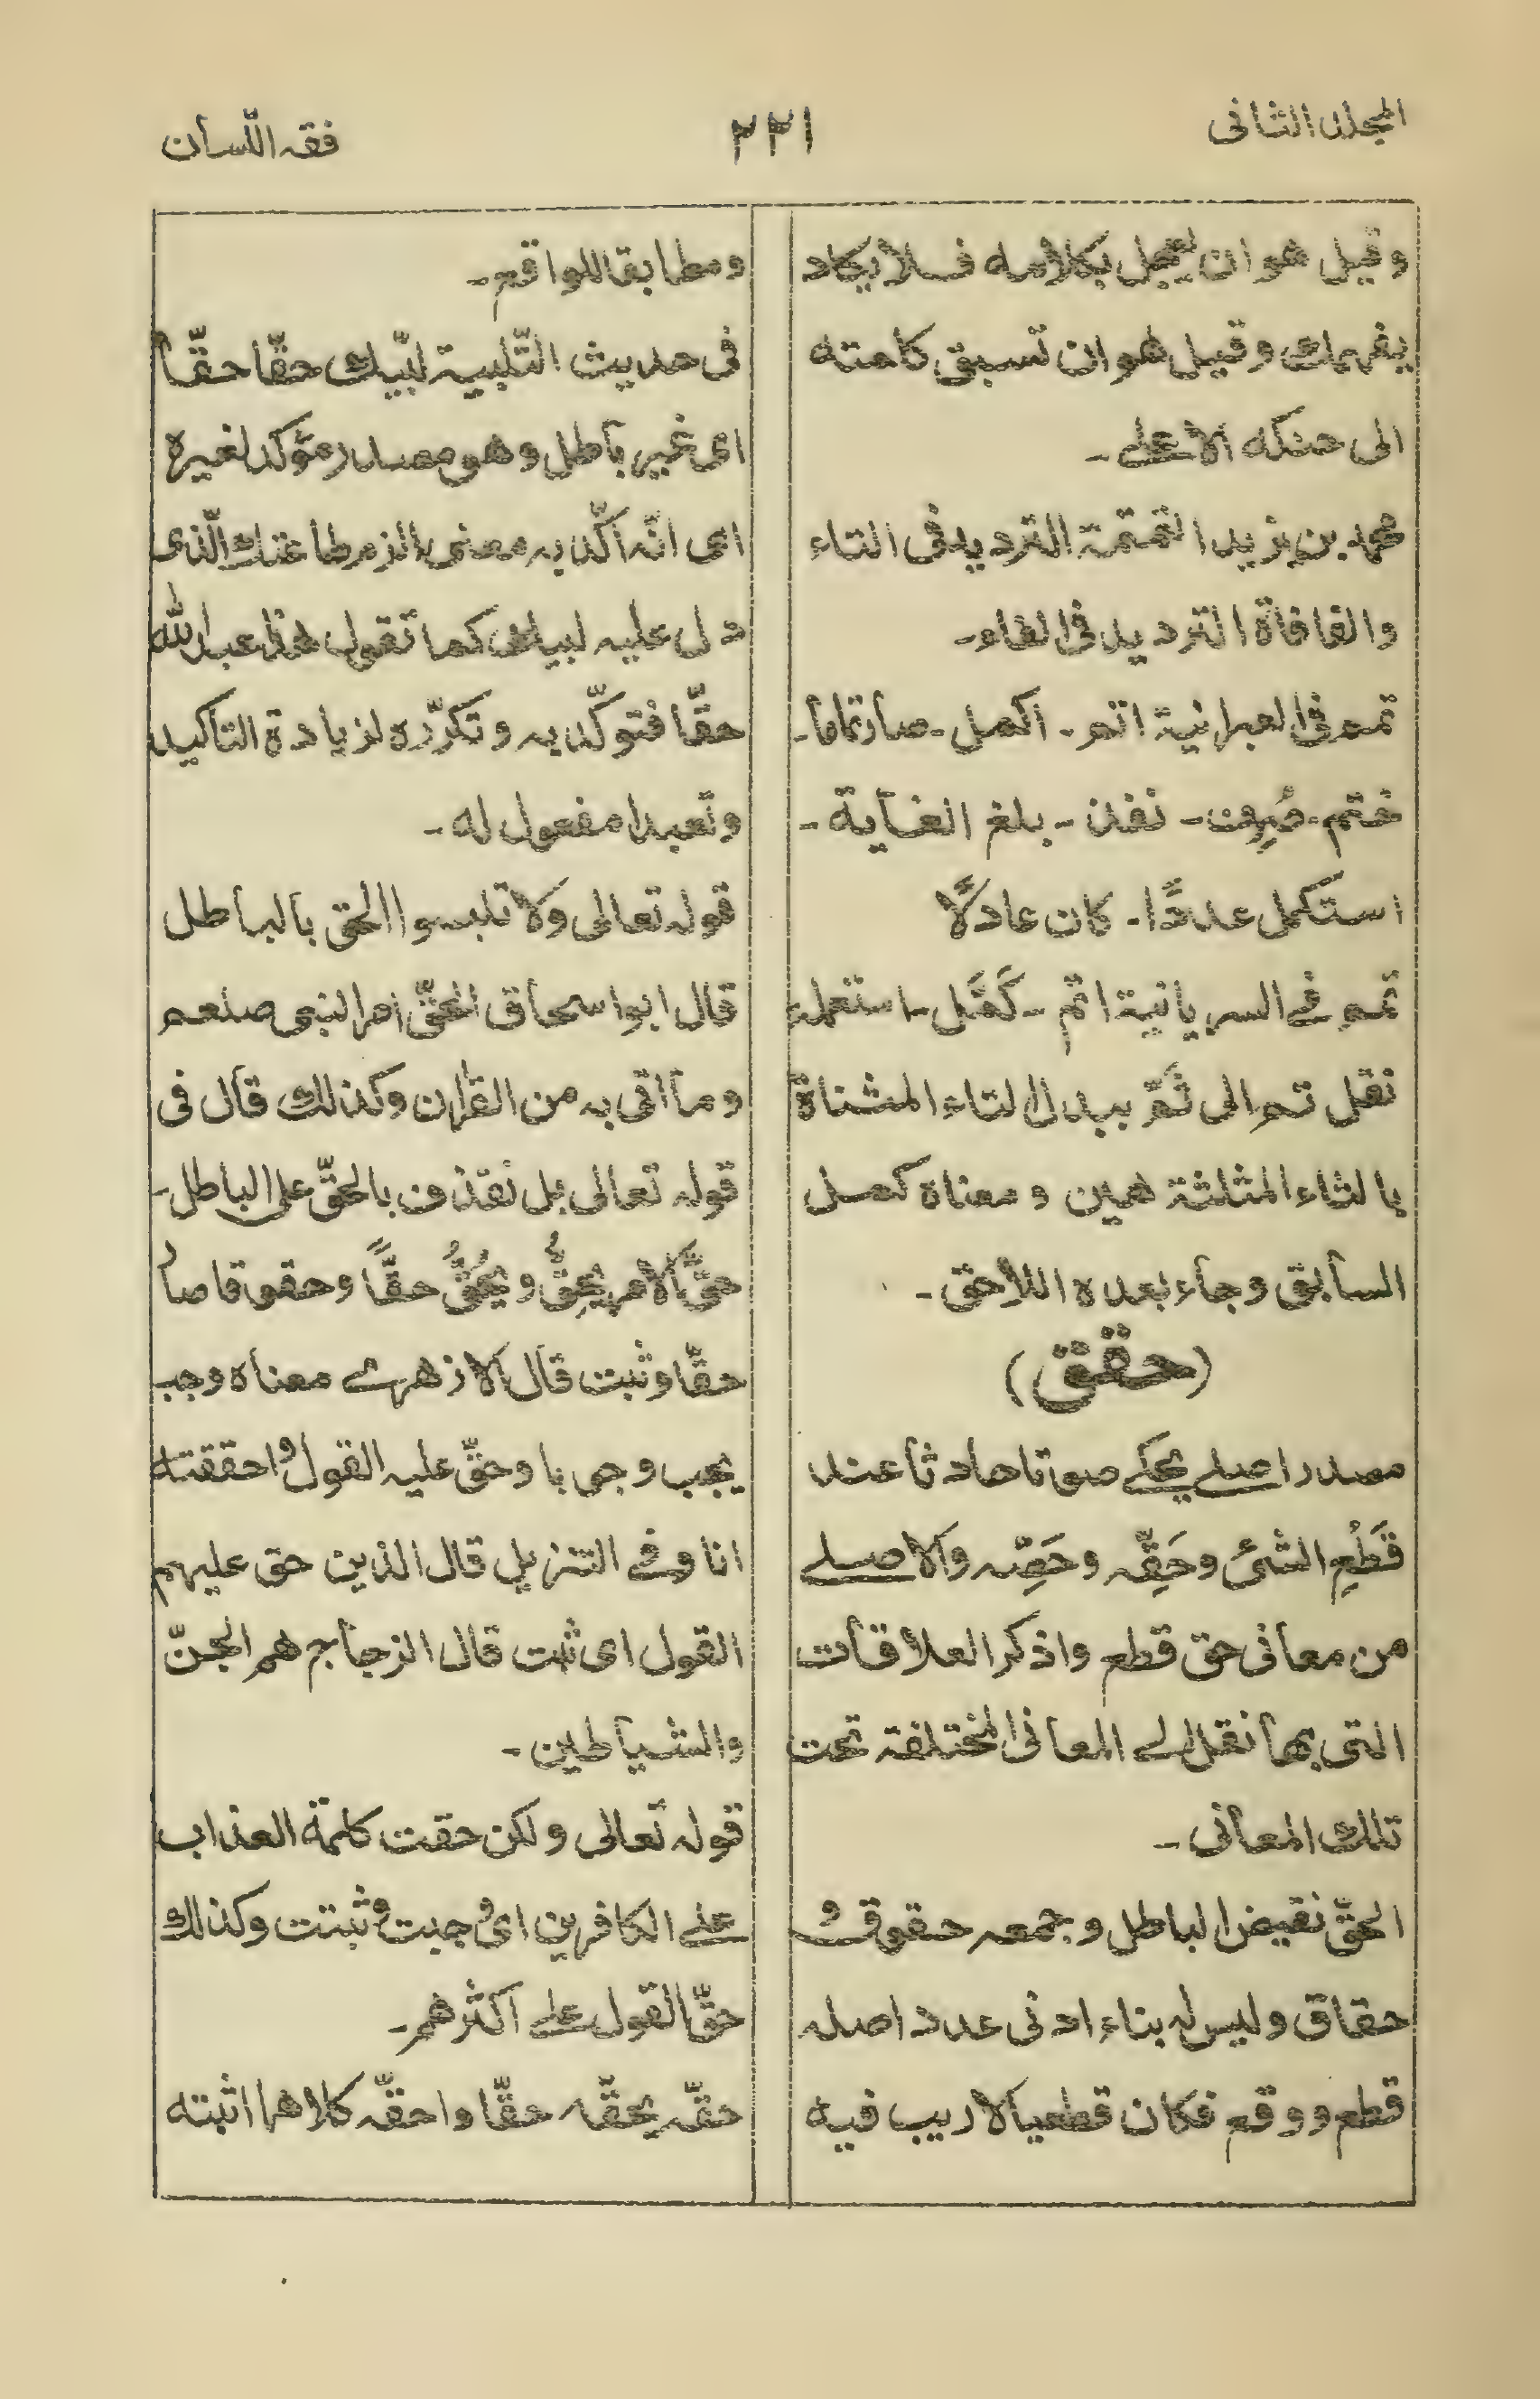 المجلد الثانی
٢٢١
فقه اللّسان
وقیل هو ان یعجل بکلامه فلا یکاد
یفهمك وقیل هو ان تسبق کلمته
الی حنکه الاعلے ـ
محمد بن یزید التمتمة التردید فی التاء
والفافاة التردید فی الفاء ـ
تمم فی العبرانیة اتم ـ اکمل ـ صار تماما ـ
ختم ـ صُرِف ـ نفذ ـ بلغ الغایة ـ
استکمل عددًا ـ کان عادلًا
تمم فے السریانیة اتم ـ کَمَّل ـ استعمل
نقل تم الی ثُمَّ ببدل التاء المثناة
بالثاء المثلثة همین و معناه کمل
السابق وجاء بعده اللاحق ـ
(حقق)
مصدر اصلے یحکے صوتا حادثا عند
قَطْعِ الشئ وحَقِّه وحَصِّه والاصلے
من معانی حق قطع واذکر العلاقات
التی بها نقل الے المعانی المختلفة تحت
تلك المعانی ـ
الحقّ نقیض الباطل وجمعه حقوق و
حقاق ولیس له بناء ادنی عدد اصله
قطع ووقع فکان قطعیا لا ریب فیه
ومطابقا للواقع ـ
فی حدیث التّلبیة لبّیك حقّا حقّا
ای غیر باطل وهو مصدر مؤکد لغیره
ای انّه اکّد به معنی الزم طاعتك الّذی
دل علیه لبیك کما تقول هذا عبد الله
حقّا فتوکّد به وتکرّره لزیادة التاکید
وتعبدا مفعول له ـ
قوله تعالی ولا تلبسوا الحق بالباطل
قال ابو اسحاق الحقّ امر النبی صلعم
وما اتی به من القران وکذلك قال فی
قوله تعالی بل نقذف بالحقّ علی الباطل ـ
حقّ الامر یحِقُّ ویحُقُّ حقًّا وحقوقا صار
حقّا وثبت قال الازهرے معناه وجب
یجب وجوبا وحقّ علیه القول واحققته
انا وفے التنزیل قال الذین حق علیهم
القول ای ثبت قال الزجاج هم الجنّ
والشیاطین ـ
قوله تعالی ولکن حقت کلمة العذاب
علے الکافرین ای وجبت وثبتت وکذلك
حقّ القول علے اکثرهم ـ
حقّه یحقّه حقّا واحقّه کلاهما اثبته